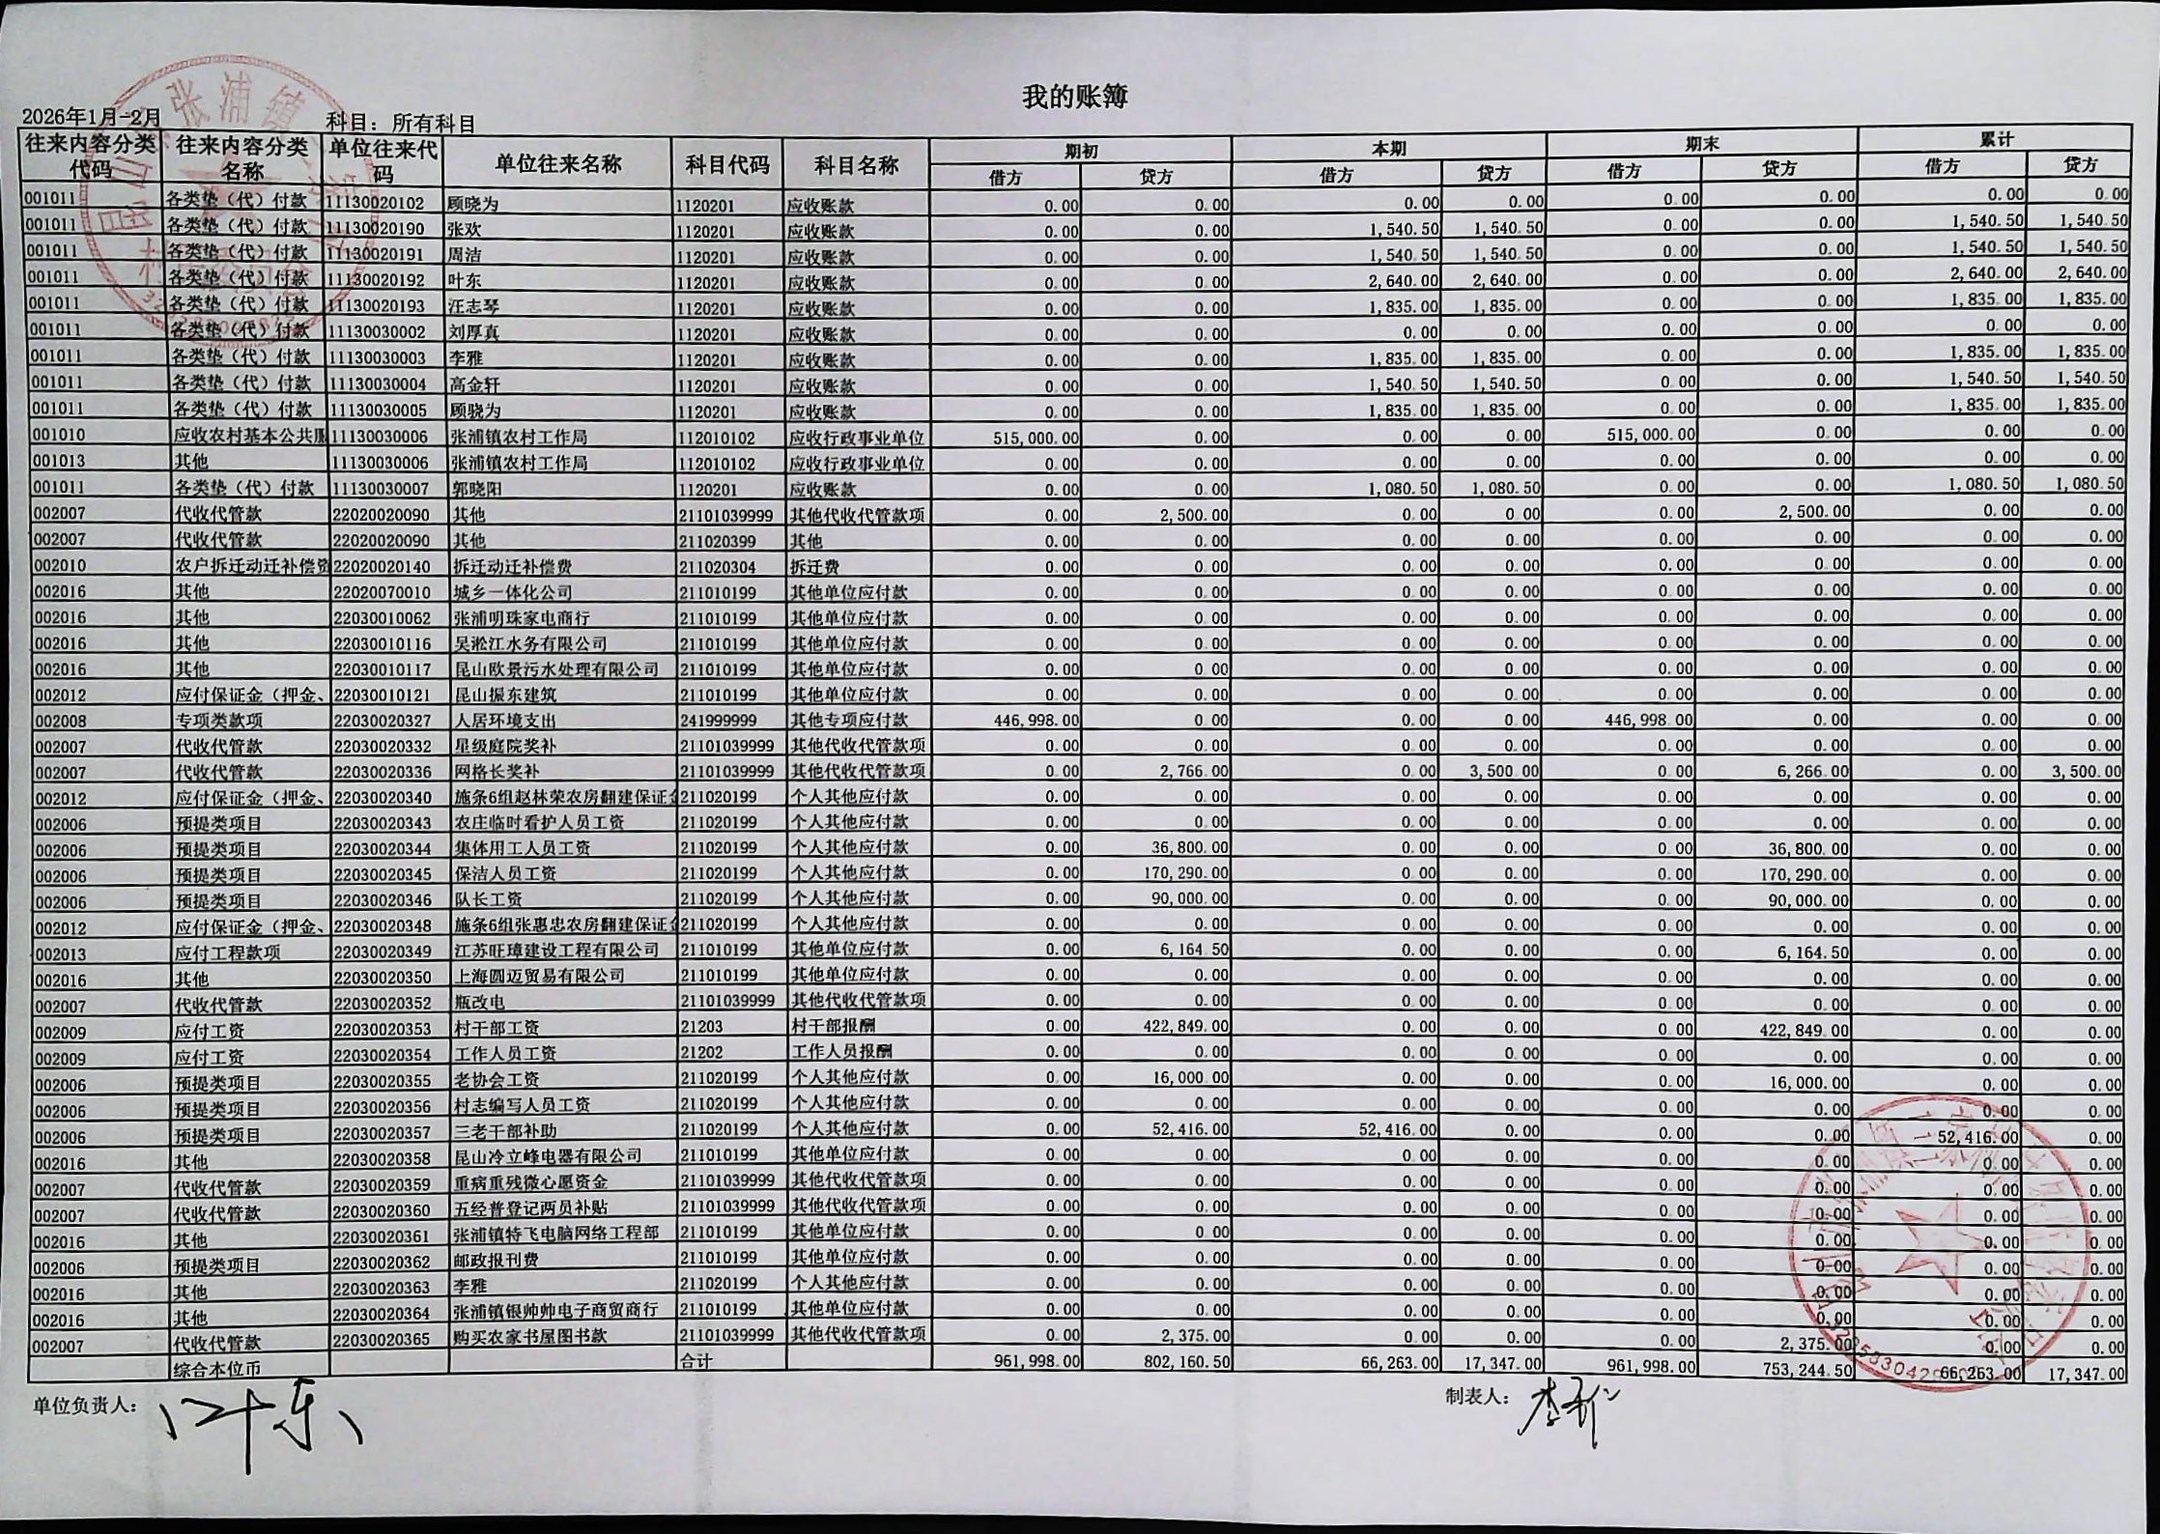 我的账簿
2026年1月-2月 科目：所有科目
往来内容分类代码 往来内容分类名称 单位往来代码 单位往来名称 科目代码 科目名称 期初 本期 期末 累计
借方 贷方 借方 贷方 借方 贷方 借方 贷方
001011 各类垫（代）付款 11130020102 顾晓为 1120201 应收账款 0.00 0.00 0.00 0.00 0.00 0.00 0.00 0.00
001011 各类垫（代）付款 11130020190 张欢 1120201 应收账款 0.00 0.00 1,540.50 1,540.50 0.00 0.00 1,540.50 1,540.50
001011 各类垫（代）付款 11130020191 周洁 1120201 应收账款 0.00 0.00 1,540.50 1,540.50 0.00 0.00 1,540.50 1,540.50
001011 各类垫（代）付款 11130020192 叶东 1120201 应收账款 0.00 0.00 2,640.00 2,640.00 0.00 0.00 2,640.00 2,640.00
001011 各类垫（代）付款 11130020193 汪志琴 1120201 应收账款 0.00 0.00 1,835.00 1,835.00 0.00 0.00 1,835.00 1,835.00
001011 各类垫（代）付款 11130030002 刘厚真 1120201 应收账款 0.00 0.00 0.00 0.00 0.00 0.00 0.00 0.00
001011 各类垫（代）付款 11130030003 李雅 1120201 应收账款 0.00 0.00 1,835.00 1,835.00 0.00 0.00 1,835.00 1,835.00
001011 各类垫（代）付款 11130030004 高金轩 1120201 应收账款 0.00 0.00 1,540.50 1,540.50 0.00 0.00 1,540.50 1,540.50
001011 各类垫（代）付款 11130030005 顾骁为 1120201 应收账款 0.00 0.00 1,835.00 1,835.00 0.00 0.00 1,835.00 1,835.00
001010 应收农村基本公共服 11130030006 张浦镇农村工作局 112010102 应收行政事业单位 515,000.00 0.00 0.00 0.00 515,000.00 0.00 0.00 0.00
001013 其他 11130030006 张浦镇农村工作局 112010102 应收行政事业单位 0.00 0.00 0.00 0.00 0.00 0.00 0.00 0.00
001011 各类垫（代）付款 11130030007 郭晓阳 1120201 应收账款 0.00 0.00 1,080.50 1,080.50 0.00 0.00 1,080.50 1,080.50
002007 代收代管款 22020020090 其他 21101039999 其他代收代管款项 0.00 2,500.00 0.00 0.00 0.00 2,500.00 0.00 0.00
002007 代收代管款 22020020090 其他 211020399 其他 0.00 0.00 0.00 0.00 0.00 0.00 0.00 0.00
002010 农户拆迁动迁补偿资 22020020140 拆迁动迁补偿费 211020304 拆迁费 0.00 0.00 0.00 0.00 0.00 0.00 0.00 0.00
002016 其他 22020070010 城乡一体化公司 211010199 其他单位应付款 0.00 0.00 0.00 0.00 0.00 0.00 0.00 0.00
002016 其他 22030010062 张浦明珠家电商行 211010199 其他单位应付款 0.00 0.00 0.00 0.00 0.00 0.00 0.00 0.00
002016 其他 22030010116 吴淞江水务有限公司 211010199 其他单位应付款 0.00 0.00 0.00 0.00 0.00 0.00 0.00 0.00
002016 其他 22030010117 昆山欧景污水处理有限公司 211010199 其他单位应付款 0.00 0.00 0.00 0.00 0.00 0.00 0.00 0.00
002012 应付保证金（押金、 22030010121 昆山振东建筑 211010199 其他单位应付款 0.00 0.00 0.00 0.00 0.00 0.00 0.00 0.00
002008 专项类款项 22030020327 人居环境支出 241999999 其他专项应付款 446,998.00 0.00 0.00 0.00 446,998.00 0.00 0.00 0.00
002007 代收代管款 22030020332 星级庭院奖补 21101039999 其他代收代管款项 0.00 0.00 0.00 0.00 0.00 0.00 0.00 0.00
002007 代收代管款 22030020336 网格长奖补 21101039999 其他代收代管款项 0.00 2,766.00 0.00 3,500.00 0.00 6,266.00 0.00 3,500.00
002012 应付保证金（押金、 22030020340 施条6组赵林荣农房翻建保证金 211020199 个人其他应付款 0.00 0.00 0.00 0.00 0.00 0.00 0.00 0.00
002006 预提类项目 22030020343 农庄临时看护人员工资 211020199 个人其他应付款 0.00 0.00 0.00 0.00 0.00 0.00 0.00 0.00
002006 预提类项目 22030020344 集体用工人员工资 211020199 个人其他应付款 0.00 36,800.00 0.00 0.00 0.00 36,800.00 0.00 0.00
002006 预提类项目 22030020345 保洁人员工资 211020199 个人其他应付款 0.00 170,290.00 0.00 0.00 0.00 170,290.00 0.00 0.00
002006 预提类项目 22030020346 队长工资 211020199 个人其他应付款 0.00 90,000.00 0.00 0.00 0.00 90,000.00 0.00 0.00
002012 应付保证金（押金、 22030020348 施条6组张惠忠农房翻建保证金 211020199 个人其他应付款 0.00 0.00 0.00 0.00 0.00 0.00 0.00 0.00
002013 应付工程款项 22030020349 江苏旺璋建设工程有限公司 211010199 其他单位应付款 0.00 6,164.50 0.00 0.00 0.00 6,164.50 0.00 0.00
002016 其他 22030020350 上海圆迈贸易有限公司 211010199 其他单位应付款 0.00 0.00 0.00 0.00 0.00 0.00 0.00 0.00
002007 代收代管款 22030020352 瓶改电 21101039999 其他代收代管款项 0.00 0.00 0.00 0.00 0.00 0.00 0.00 0.00
002009 应付工资 22030020353 村干部工资 21203 村干部报酬 0.00 422,849.00 0.00 0.00 0.00 422,849.00 0.00 0.00
002009 应付工资 22030020354 工作人员工资 21202 工作人员报酬 0.00 0.00 0.00 0.00 0.00 0.00 0.00 0.00
002006 预提类项目 22030020355 老协会工资 211020199 个人其他应付款 0.00 16,000.00 0.00 0.00 0.00 16,000.00 0.00 0.00
002006 预提类项目 22030020356 村志编写人员工资 211020199 个人其他应付款 0.00 0.00 0.00 0.00 0.00 0.00 0.00 0.00
002006 预提类项目 22030020357 三老干部补助 211020199 个人其他应付款 0.00 52,416.00 52,416.00 0.00 0.00 0.00 52,416.00 0.00
002016 其他 22030020358 昆山冷立峰电器有限公司 211010199 其他单位应付款 0.00 0.00 0.00 0.00 0.00 0.00 0.00 0.00
002007 代收代管款 22030020359 重病重残微心愿资金 21101039999 其他代收代管款项 0.00 0.00 0.00 0.00 0.00 0.00 0.00 0.00
002007 代收代管款 22030020360 五经普登记两员补贴 21101039999 其他代收代管款项 0.00 0.00 0.00 0.00 0.00 0.00 0.00 0.00
002016 其他 22030020361 张浦镇特飞电脑网络工程部 211010199 其他单位应付款 0.00 0.00 0.00 0.00 0.00 0.00 0.00 0.00
002006 预提类项目 22030020362 邮政报刊费 211010199 其他单位应付款 0.00 0.00 0.00 0.00 0.00 0.00 0.00 0.00
002016 其他 22030020363 李雅 211020199 个人其他应付款 0.00 0.00 0.00 0.00 0.00 0.00 0.00 0.00
002016 其他 22030020364 张浦镇银帅帅电子商贸商行 211010199 其他单位应付款 0.00 0.00 0.00 0.00 0.00 0.00 0.00 0.00
002007 代收代管款 22030020365 购买农家书屋图书款 21101039999 其他代收代管款项 0.00 2,375.00 0.00 0.00 0.00 2,375.00 0.00 0.00
综合本位币 合计 961,998.00 802,160.50 66,263.00 17,347.00 961,998.00 753,244.50 66,263.00 17,347.00
单位负责人： 叶东 制表人： 李雅
张浦镇